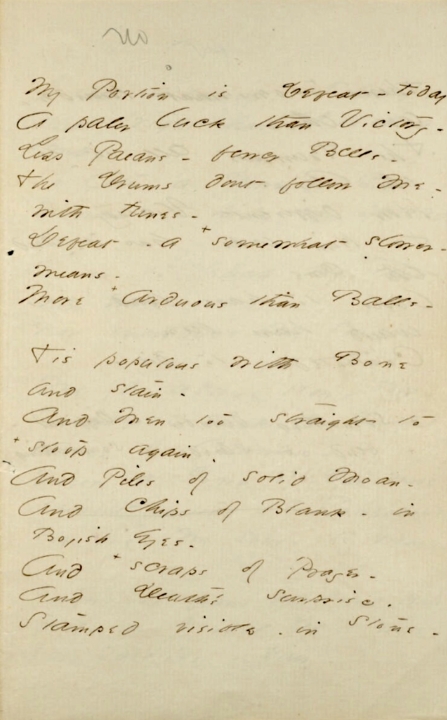 My Portion is Defeat - today
A paler luck than Victory -
Less Paeans - fewer Bells -
The Drums dont follow Me -
with tunes -
Defeat - a + somewhat slower -
means -
More + Arduous than Balls -
Tis populous with Bone
and stain -
And Men too straight to
+ stoop again -
And Piles of solid Moan -
And Chips of Blank - in
Boyish Eyes -
And + scraps of Prayer -
And Death's surprise,
Stamped visible - in Stone -